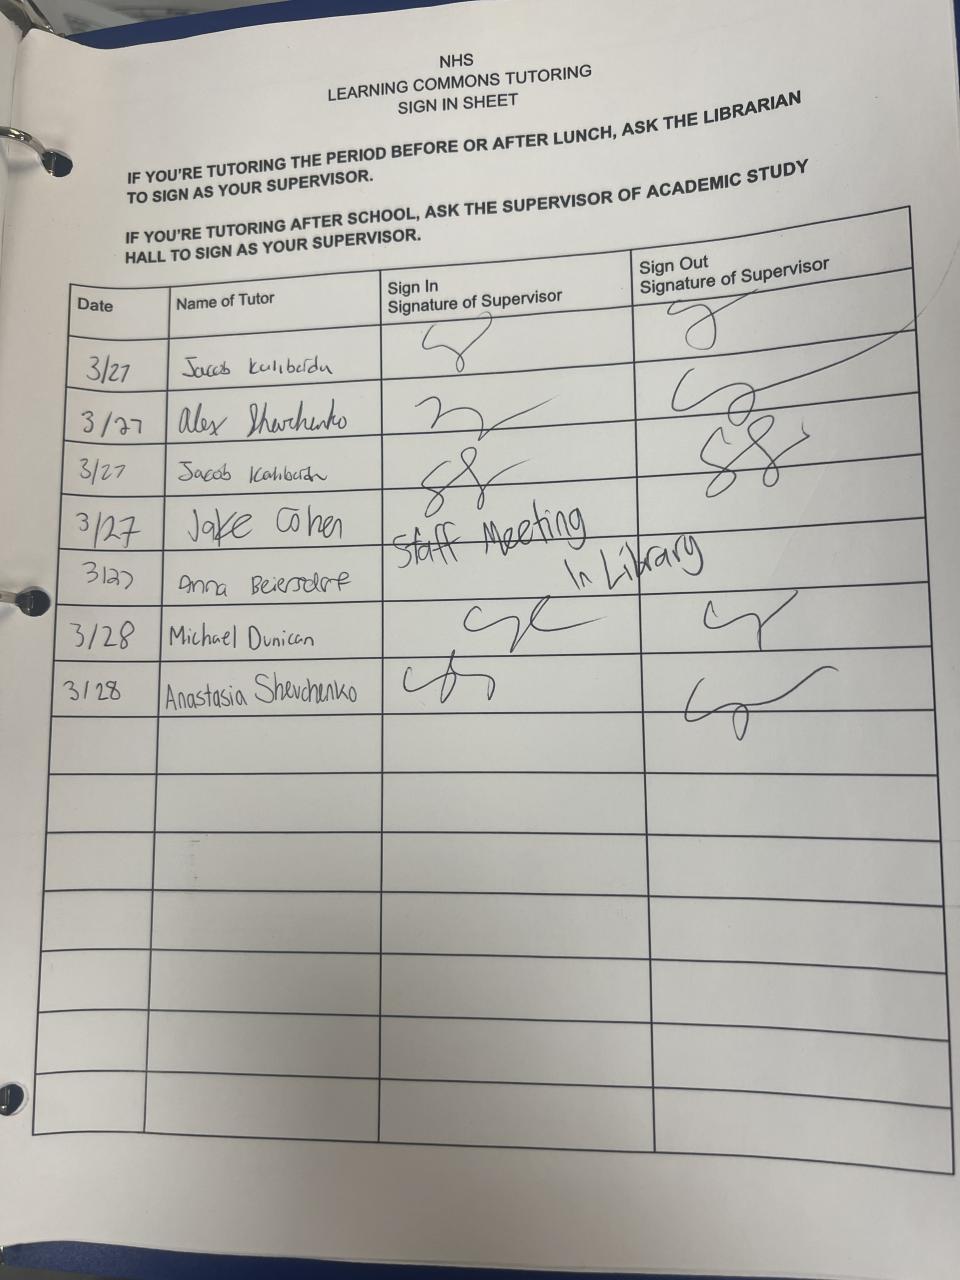 NHS
LEARNING COMMONS TUTORING
SIGN IN SHEET
IF YOU'RE TUTORING THE PERIOD BEFORE OR AFTER LUNCH, ASK THE LIBRARIAN
TO SIGN AS YOUR SUPERVISOR.
IF YOU'RE TUTORING AFTER SCHOOL, ASK THE SUPERVISOR OF ACADEMIC STUDY
HALL TO SIGN AS YOUR SUPERVISOR.
Date Name of Tutor Sign In Signature of Supervisor Sign Out Signature of Supervisor
3/27 Jacob
3/27 Alex Shevchenko
3/27 Jacob
3/27 Jake Cohen Staff Meeting
3/27 Anna Beiersdorf In Library
3/28 Michael Dunican
3/28 Anastasia Shevchenko